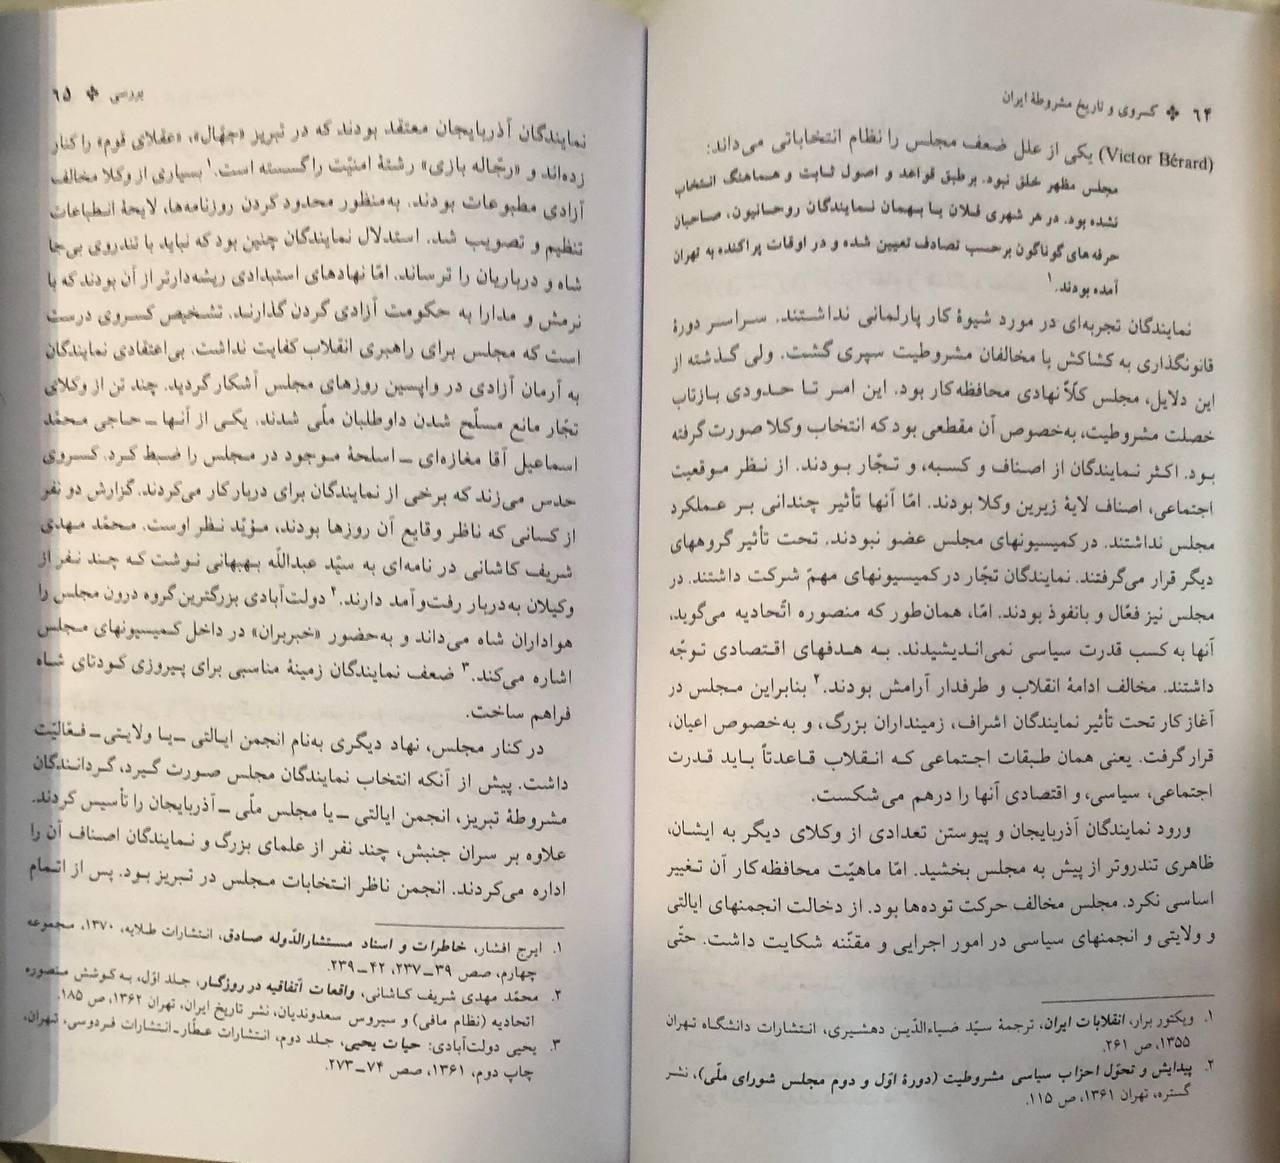 ۶۴ ❖ کسروی و تاریخ مشروطهٔ ایران
(Victor Bérard) یکی از علل ضعف مجلس را نظام انتخاباتی می‌داند:
مجلس مظهر خلق نبود. برطبق قواعد و اصول ثابت و هماهنگ انتخاب
نشده بود. در هر شهری فلان یا بهمان نمایندگان روحانیون، صاحبان
حرفه‌های گوناگون برحسب تصادف تعیین شده و در اوقات پراکنده به تهران
آمده بودند.۱
نمایندگان تجربه‌ای در مورد شیوهٔ کار پارلمانی نداشتند. سراسر دورهٔ
قانونگذاری به کشاکش با مخالفان مشروطیت سپری گشت. ولی گذشته از
این دلایل، مجلس کلّاً نهادی محافظه‌کار بود. این امر تا حدودی بازتاب
خصلت مشروطیت، به‌خصوص آن مقطعی بود که انتخاب وکلا صورت گرفته
بود. اکثر نمایندگان از اصناف و کسبه، و تجّار بودند. از نظر موقعیت
اجتماعی، اصناف لایهٔ زیرین وکلا بودند. امّا آنها تأثیر چندانی بر عملکرد
مجلس نداشتند. در کمیسیونهای مجلس عضو نبودند. تحت تأثیر گروههای
دیگر قرار می‌گرفتند. نمایندگان تجّار در کمیسیونهای مهمّ شرکت داشتند. در
مجلس نیز فعّال و بانفوذ بودند. امّا، همان‌طور که منصوره اتّحادیه می‌گوید،
آنها به کسب قدرت سیاسی نمی‌اندیشیدند. به هدفهای اقتصادی توجّه
داشتند. مخالف ادامهٔ انقلاب و طرفدار آرامش بودند.۲ بنابراین مجلس در
آغاز کار تحت تأثیر نمایندگان اشراف، زمینداران بزرگ، و به‌خصوص اعیان،
قرار گرفت. یعنی همان طبقات اجتماعی که انقلاب قاعدتاً باید قدرت
اجتماعی، سیاسی، و اقتصادی آنها را درهم می‌شکست.
ورود نمایندگان آذربایجان و پیوستن تعدادی از وکلای دیگر به ایشان،
ظاهری تندروتر از پیش به مجلس بخشید. امّا ماهیّت محافظه‌کار آن تغییر
اساسی نکرد. مجلس مخالف حرکت توده‌ها بود. از دخالت انجمنهای ایالتی
و ولایتی و انجمنهای سیاسی در امور اجرایی و مقنّنه شکایت داشت. حتّی
۱. ویکتور برار، انقلابات ایران، ترجمهٔ سیّد ضیاءالدّین دهشیری، انتشارات دانشگاه تهران
۱۳۵۵، ص ۲۶۱.
۲. پیدایش و تحوّل احزاب سیاسی مشروطیت (دورهٔ اوّل و دوم مجلس شورای ملّی)، نشر
گستره، تهران ۱۳۶۱، ص ۱۱۵.
بررسی ❖ ۶۵
نمایندگان آذربایجان معتقد بودند که در تبریز «جهّال»، «عقلای قوم» را کنار
زده‌اند و «رجّاله بازی» رشتهٔ امنیّت را گسسته است.۱ بسیاری از وکلا مخالف
آزادی مطبوعات بودند. به‌منظور محدود کردن روزنامه‌ها، لایحهٔ انطباعات
تنظیم و تصویب شد. استدلال نمایندگان چنین بود که نباید با تندروی بی‌جا
شاه و درباریان را ترساند. امّا نهادهای استبدادی ریشه‌دارتر از آن بودند که با
نرمش و مدارا به حکومت آزادی گردن گذارند. تشخیص کسروی درست
است که مجلس برای راهبری انقلاب کفایت نداشت. بی‌اعتقادی نمایندگان
به آرمان آزادی در واپسین روزهای مجلس آشکار گردید. چند تن از وکلای
تجّار مانع مسلّح شدن داوطلبان ملّی شدند. یکی از آنها ـ حاجی محمّد
اسماعیل آقا مغازه‌ای ـ اسلحهٔ موجود در مجلس را ضبط کرد. کسروی
حدس می‌زند که برخی از نمایندگان برای دربار کار می‌کردند. گزارش دو نفر
از کسانی که ناظر وقایع آن روزها بودند، مؤیّد نظر اوست. محمّد مهدی
شریف کاشانی در نامه‌ای به سیّد عبدالله بهبهانی نوشت که چند نفر از
وکیلان به‌دربار رفت‌وآمد دارند.۲ دولت‌آبادی بزرگترین گروه درون مجلس را
هواداران شاه می‌داند و به‌حضور «خبربران» در داخل کمیسیونهای مجلس
اشاره می‌کند.۳ ضعف نمایندگان زمینهٔ مناسبی برای پیروزی کودتای شاه
فراهم ساخت.
در کنار مجلس، نهاد دیگری به‌نام انجمن ایالتی ـ یا ولایتی ـ فعّالیّت
داشت. پیش از آنکه انتخاب نمایندگان مجلس صورت گیرد، گردانندگان
مشروطهٔ تبریز، انجمن ایالتی ـ یا مجلس ملّی ـ آذربایجان را تأسیس کردند.
علاوه بر سران جنبش، چند نفر از علمای بزرگ و نمایندگان اصناف آن را
اداره می‌کردند. انجمن ناظر انتخابات مجلس در تبریز بود. پس از اتمام
۱. ایرج افشار، خاطرات و اسناد مستشارالدّوله صادق، انتشارات طلایه، ۱۳۷۰، مجموعه
چهارم، صص ۳۹ـ۲۳۷، ۴۲ـ۲۳۹.
۲. محمّد مهدی شریف کاشانی، واقعات اتّفاقیه در روزگار، جلد اوّل، به‌کوشش منصوره
اتحادیه (نظام مافی) و سیروس سعدوندیان، نشر تاریخ ایران، تهران ۱۳۶۲، ص ۱۸۵.
۳. یحیی دولت‌آبادی: حیات یحیی، جلد دوم، انتشارات عطّار ـ انتشارات فردوسی، تهران،
چاپ دوم، ۱۳۶۱، صص ۷۴ـ۲۷۳.